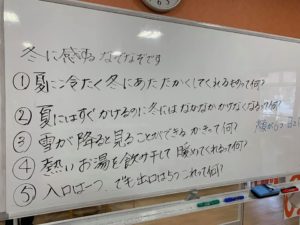 冬に感するなぞなぞです
① 夏に冷たく冬にあたたかくしてくれるものって何?
② 夏にはすぐかけるのに冬にはなかなかかけなくなるって何?
③ 雪が降ると見ることができる かきって何?
④ 熱いお湯を飲み干して 暖めてくれるって何?
⑤ 入口は一つ、でも出口は5つこれって何?